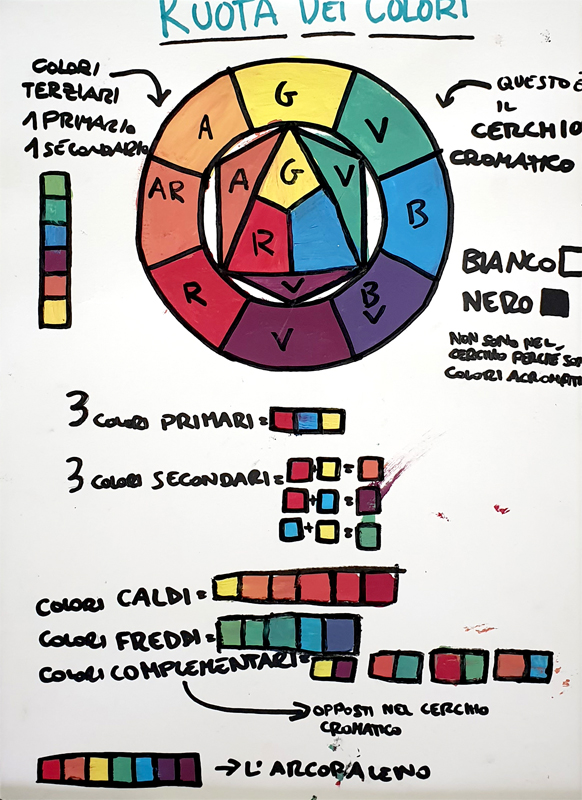 RUOTA DEI COLORI
COLORI
TERZIARI
1 PRIMARIO
1 SECONDARIO
QUESTO È
IL
CERCHIO
CROMATICO
G
A
V
AR
B
R
B
V
V
G
A
V
R
V
BIANCO
NERO
NON SONO NEL
CERCHIO PERCHÉ SON
COLORI ACROMATI
3 COLORI PRIMARI =
3 COLORI SECONDARI =
+ =
+ =
+ =
COLORI CALDI =
COLORI FREDDI =
COLORI COMPLEMENTARI =
OPPOSTI NEL CERCHIO
CROMATICO
L'ARCOBALENO